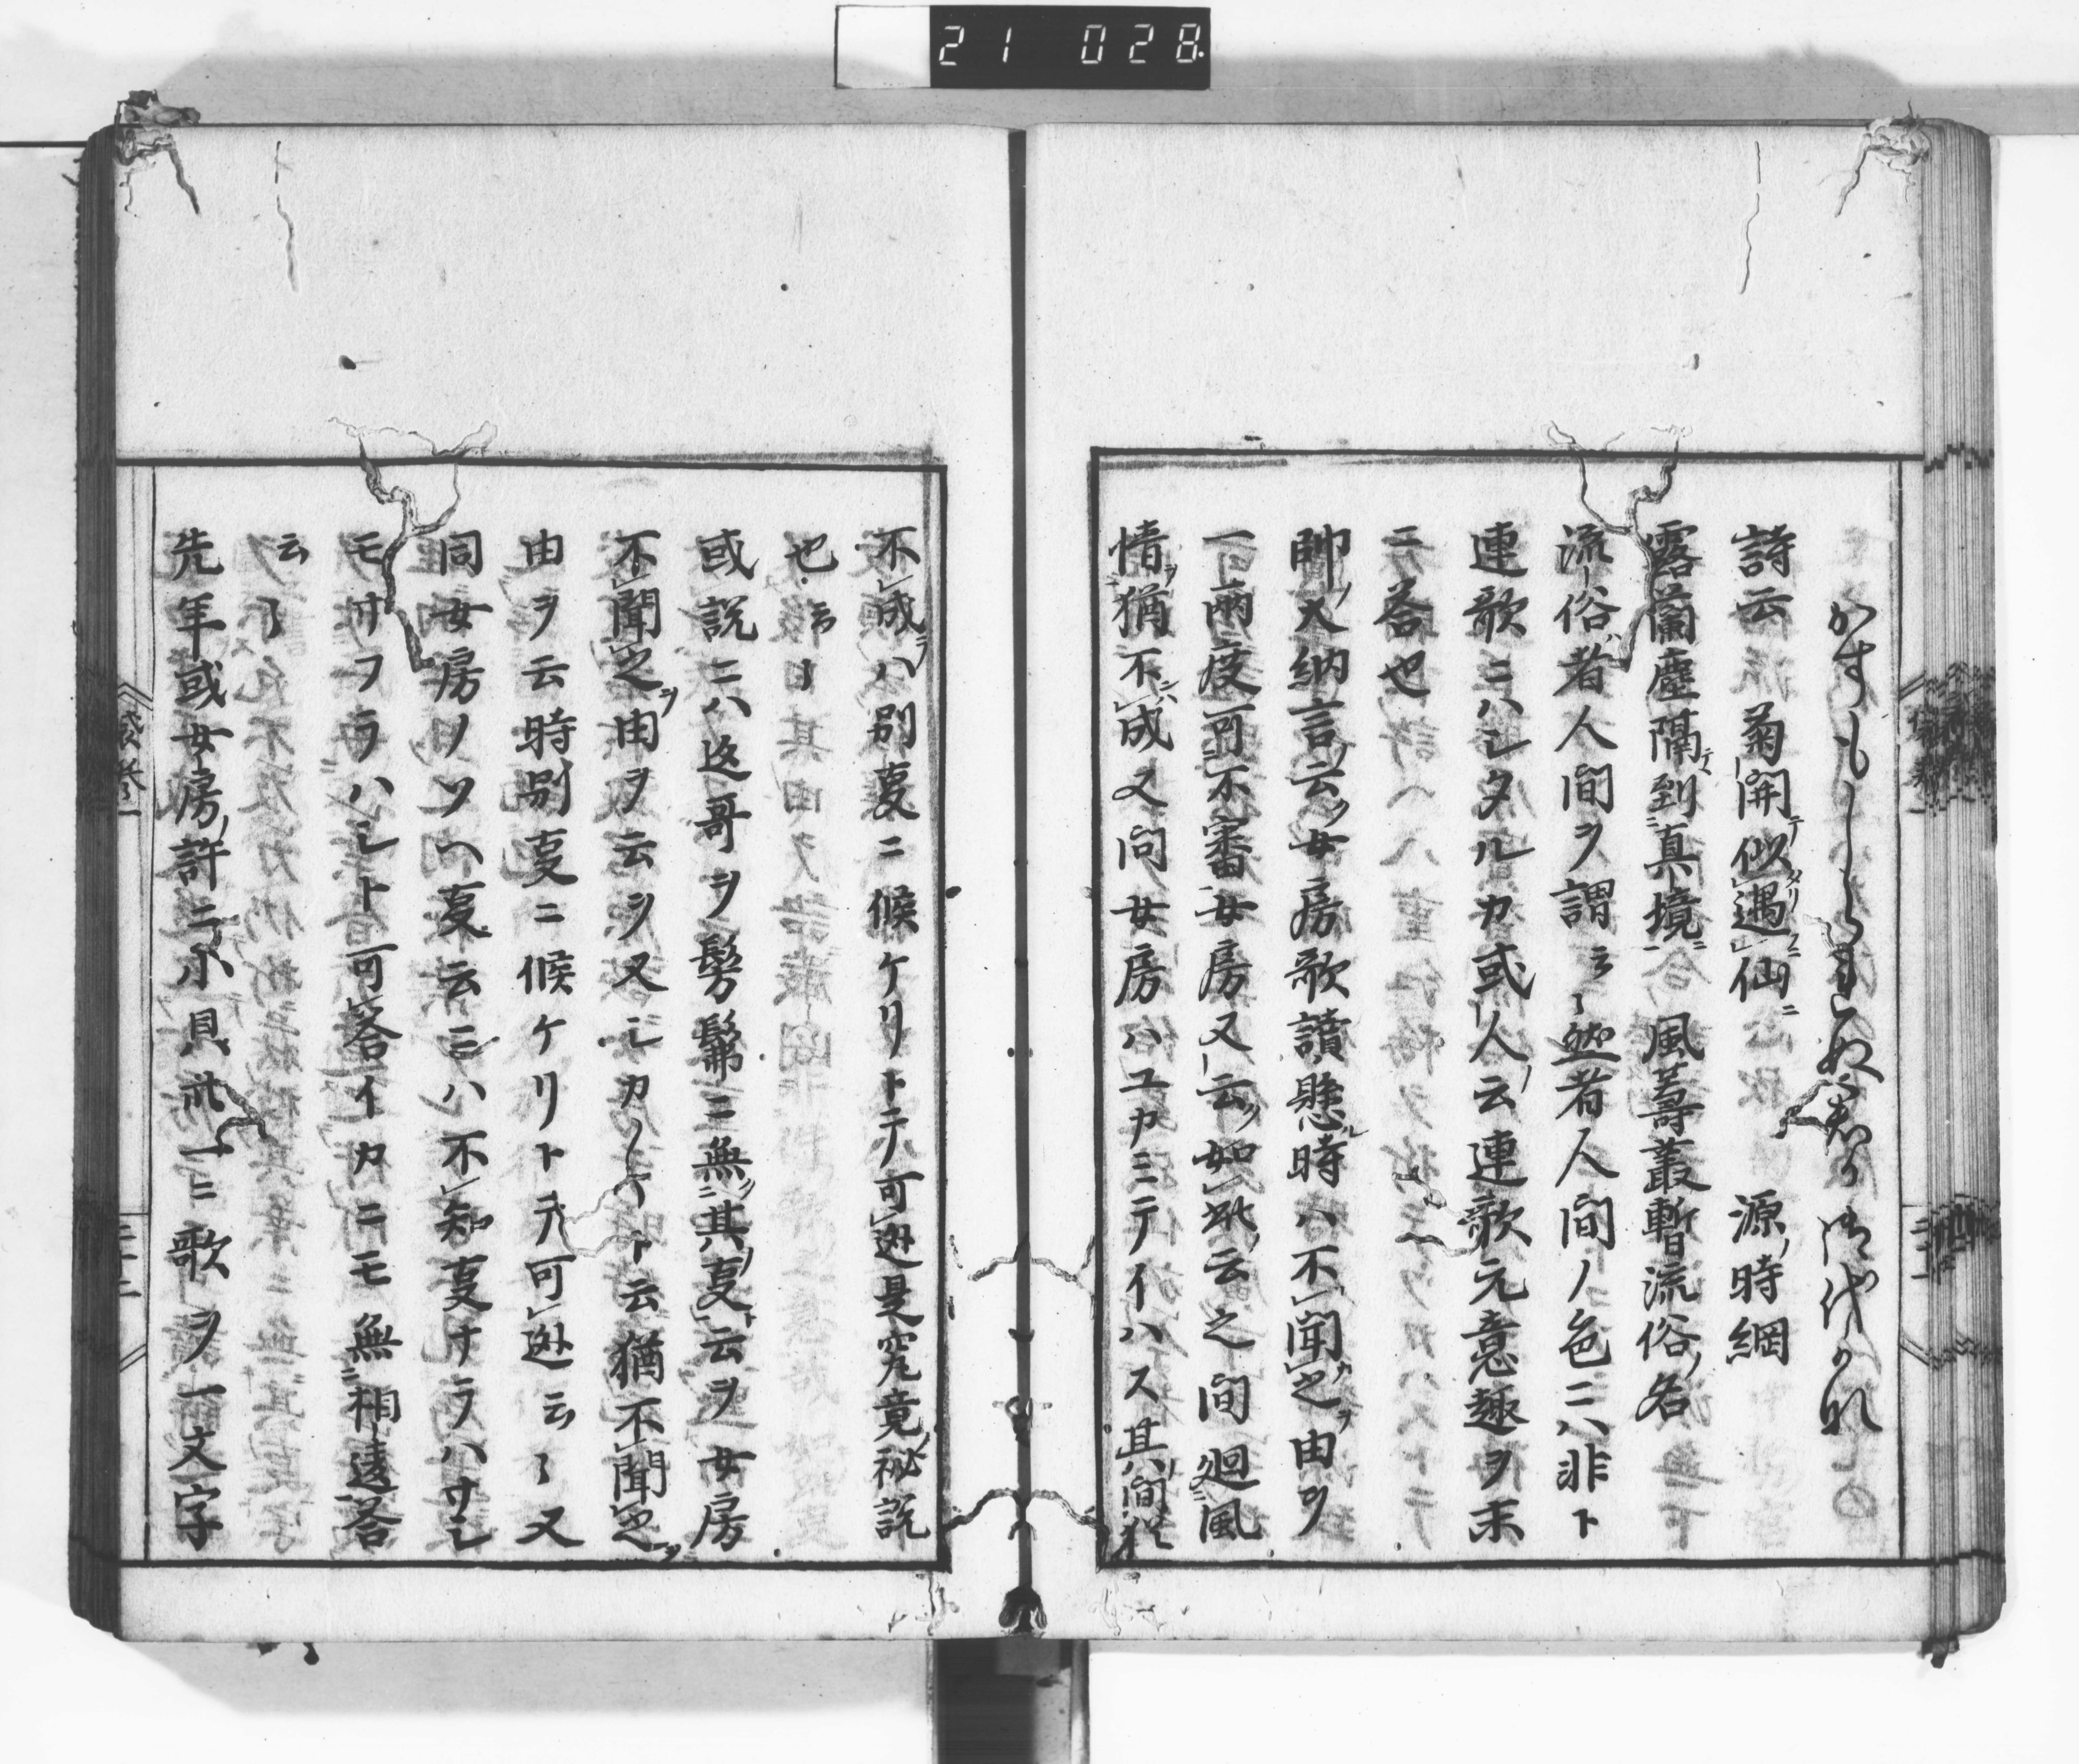 21 028
詩云 菊開テ似タリ遇フニ仙ニ 源ノ時綱
露蘭塵隔テヽ到ニ真境ニ 風暮叢暫流俗ノ名
流俗者人間ヲ謂云々然者人間ノ色ニハ非ト
連歌ニハシタルカ或人ノ云連歌元意趣ヲ末
ニ答也
帥ノ大納言ノ云ク女房歌讀懸ル時ハ不聞之ヲ由ヲ
一兩度可不審女房又云フ如此云之間廻風
情ヲ猶不ハ成又問女房ハユカミテイハス其ノ間
不成ラハ別事ニ候ケリトテ可迯是究竟ノ秘説
也云々
或説ニハ返哥ヲ髣髴ニ無其ノ事ト云ヲ女房
不聞之ヲ由ヲ云ヲシ又シカ〱ト云猶不聞之ヲ
由ヲ云時別事ニ候ケリトテ可迯云々又
同女房ノソヘ事云ニハ不知事ナラハサシ
モサフラハシト可答イカニモ無相違答
云々
先年或女房ノ許ニ小貝卅一ニ歌ヲ一文字
袋巻一